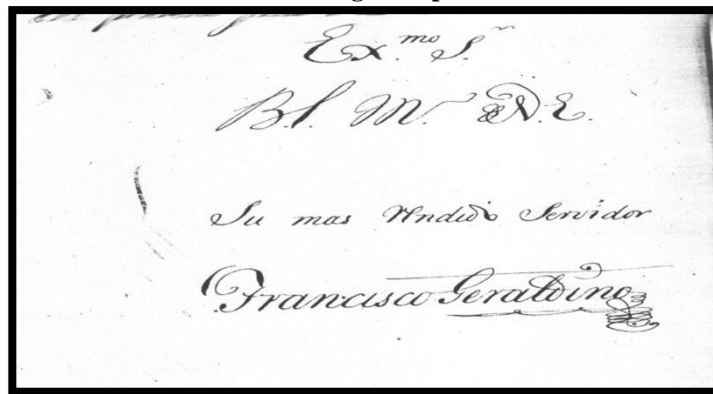 Ex.mo S.r
B.l. M. D.V.E.
Su mas Rndido Servidor
Francisco Geraldino